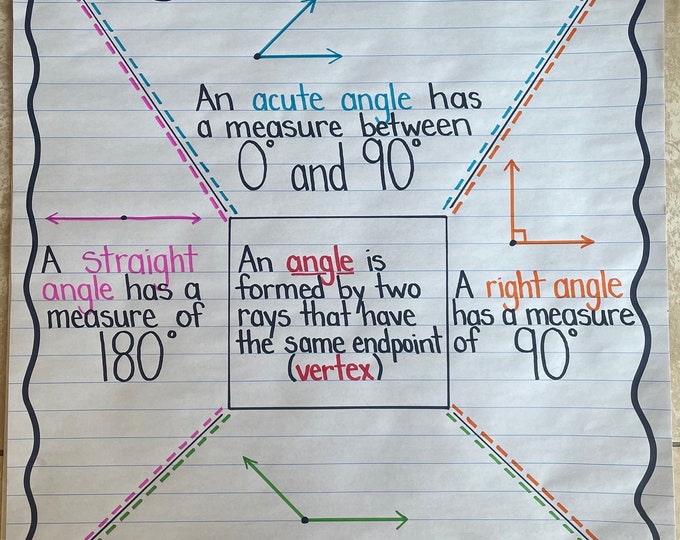 An acute angle has
a measure between
0° and 90°
A straight
angle has a
measure of
180°
An angle is
formed by two
rays that have
the same endpoint
(vertex)
A right angle
has a measure
of 90°